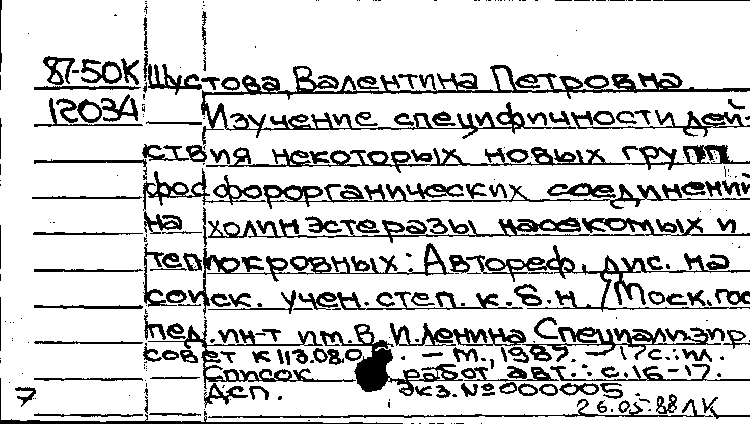 87-50К Шустова, Валентина Петровна.
12034 Изучение специфичности дей-
ствия некоторых новых групп
фосфорорганических соединений
на холинэстеразы насекомых и
теплокровных: Автореф. дис. на
соиск. учен. степ. к.б.н. /Моск. гос
пед. ин-т им. В. И. Ленина. Специализир.
совет К 113.08.0 . – М., 1987. – 17 с.: ил.
Список работ авт.: с. 16-17.
7 Дсп. Экз. № 000005.
26.05.88 ЛК